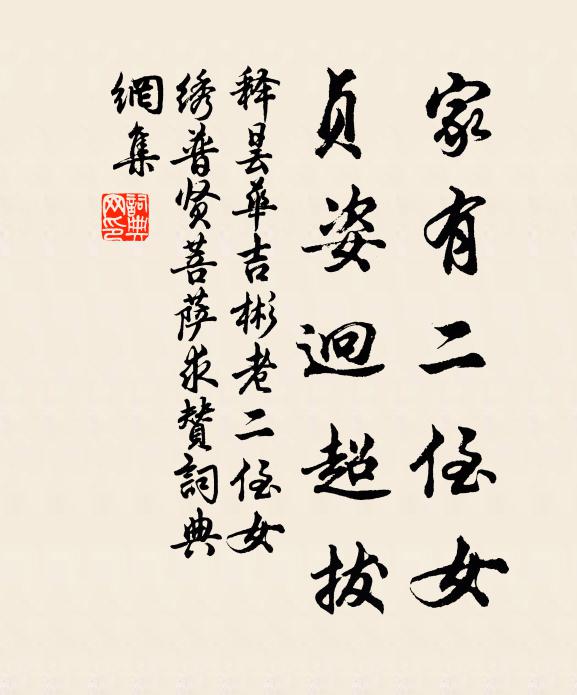 家有二侄女
貞姿迥超拔
释曇華吉彬老二侄女
绣普贤菩萨求贊詞典
網集
詞典网印